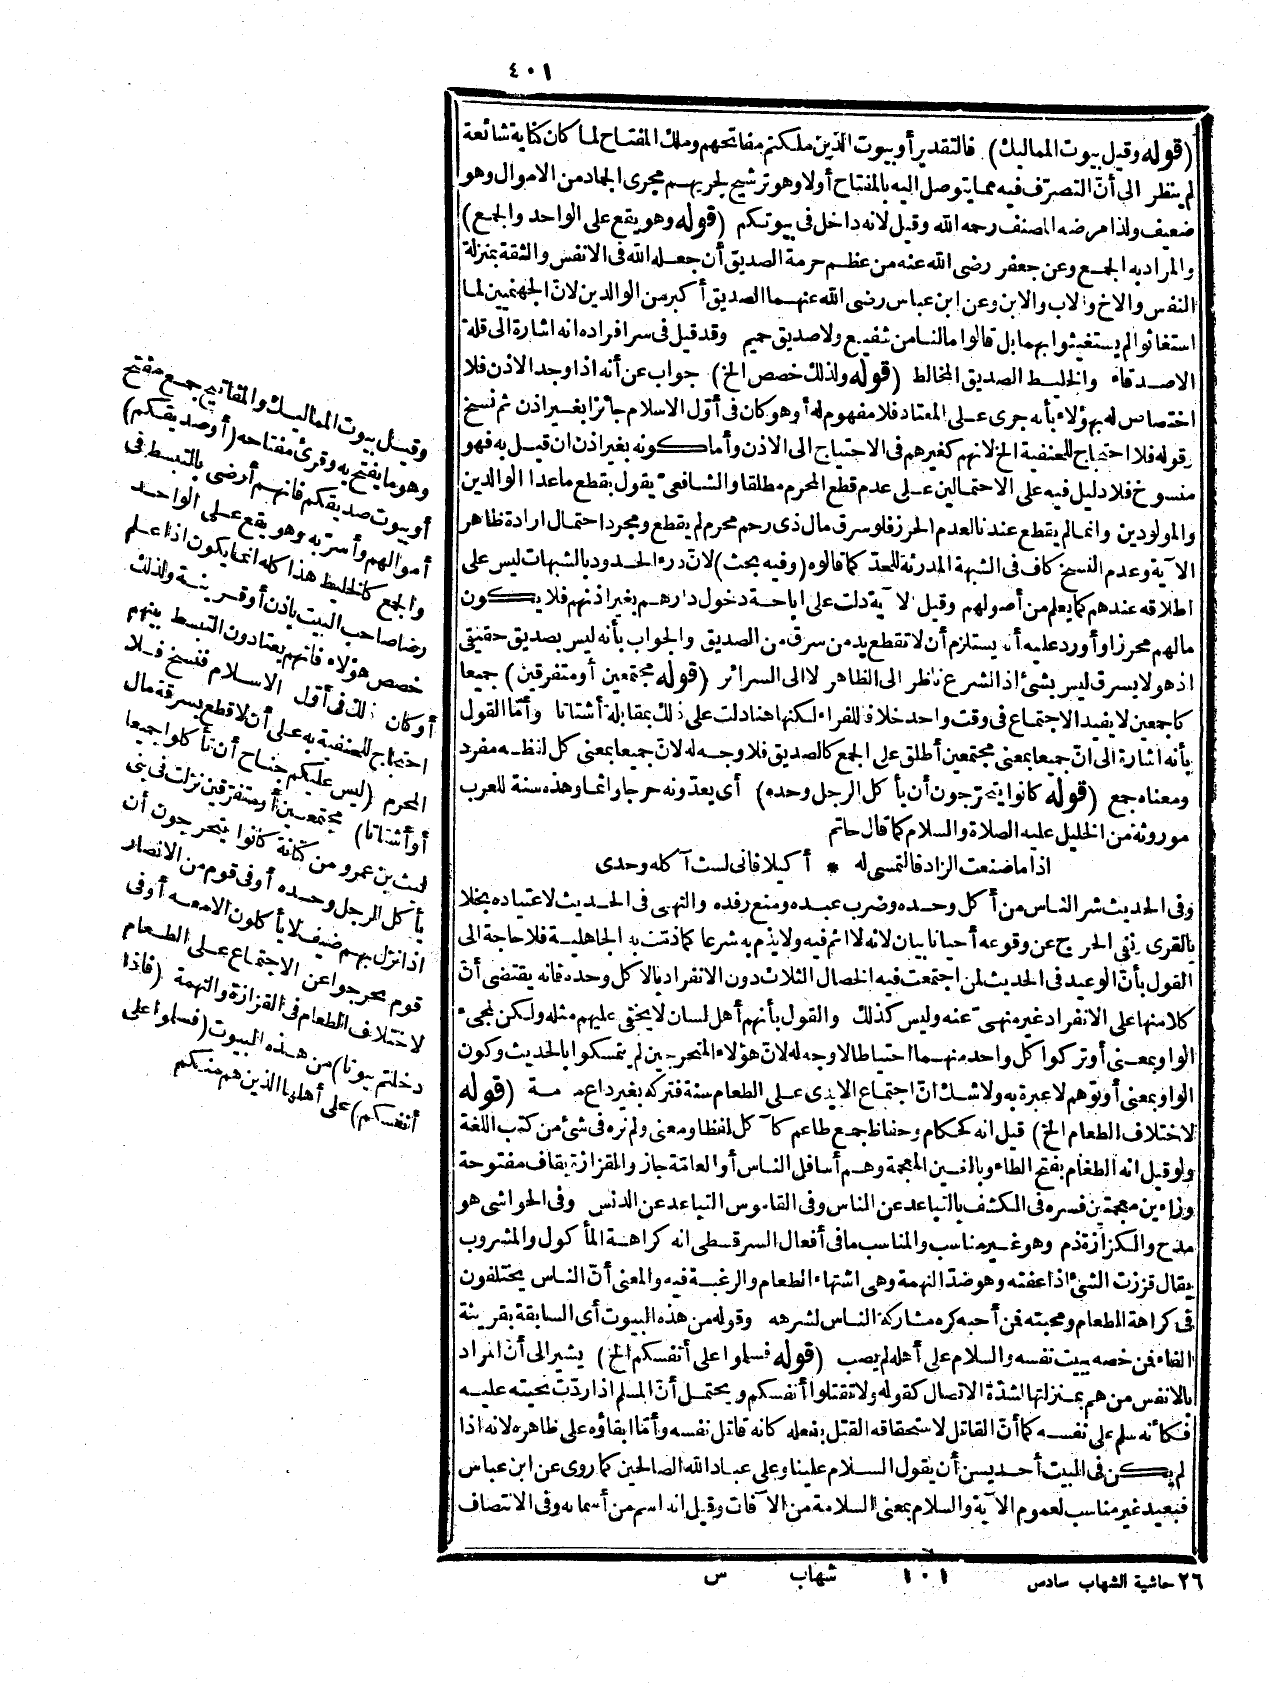 ٤٠١
(قوله وقيل بيوت المماليك) فالتقدير أو بيوت الذين ملكتم مفاتحهم وملك المفتاح لما كان كناية شائعة
لم ينظر الى أنّ التصرّف فيه مما يتوصل اليه بالمفتاح أولا وهو ترشيح لجريهم مجرى الجماد من الاموال وهو
ضعيف ولذا مرضه المصنف رحمه الله وقيل لانه داخل فى بيوتكم (قوله وهو يقع على الواحد والجمع)
والمراد به الجمع وعن جعفر رضى الله عنه من عظم حرمة الصديق أن جعله الله فى الانفس والثقة بمنزلة
النفس والاخ والاب والابن وعن ابن عباس رضى الله عنهما الصديق أكبر من الوالدين لانّ الجهنميين لما
استغاثوا لم يستغيثوا بهما بل قالوا مالنا من شفيع ولا صديق حميم وقد قيل فى سر افراده انه اشارة الى قلة
الاصدقاء والخليط الصديق المخالط (قوله ولذلك خصص الخ) جواب عن أنه اذا وجد الاذن فلا
اختصاص له بهؤلاء بأنه جرى على المعتاد فلا مفهوم له أو هو كان فى أوّل الاسلام جائزا بغير اذن ثم نسخ
وقوله فلا احتجاج للحنفية الخ لانهم كغيرهم فى الاحتياج الى الاذن وأما كونه بغير اذن ان قيل به فهو
منسوخ فلا دليل فيه على الاحتمالين على عدم قطع المحرم مطلقا والشافعىّ يقول بقطع ماعدا الوالدين
والمولودين وانما لم يقطع عندنا لعدم الحرز فلو سرق مال ذى رحم محرم لم يقطع ومجرد احتمال ارادة ظاهر
الآية وعدم النسخ كاف فى الشبهة المدرئة للحدّ كما قالوه (وفيه بحث) لانّ درء الحدود بالشبهات ليس على
اطلاقه عندهم كما يعلم من أصولهم وقيل الآية دلت على اباحة دخول دارهم بغير اذنهم فلا يكون
مالهم محرزا وأورد عليه أنه يستلزم أن لا تقطع يد من سرق من الصديق والجواب بأنه ليس بصديق حقيقى
اذ هو لا يسرق ليس بشئ اذ الشرع ناظر الى الظاهر لا الى السرائر (قوله مجتمعين أو متفرقين) جميعا
كاجمعين لا يفيد الاجتماع فى وقت واحد خلافا للفراء لكنها هنا دلت على ذلك بمقابلة أشتاتا وأمّا القول
بأنه اشارة الى انّ جميعا بمعنى مجتمعين أطلق على الجمع كالصديق فلا وجه له لانّ جميعا بمعنى كل لفظه مفرد
ومعناه جمع (قوله كانوا يتحرّجون أن يأكل الرجل وحده) أى يعدّونه حرجا واثما وهذه سنة للعرب
موروثة من الخليل عليه الصلاة والسلام كما قال حاتم
اذا ما صنعت الزاد فالتمسى له * أكيلا فانى لست آكله وحدى
وفى الحديث شر الناس من أكل وحده وضرب عبده ومنع رفده والنهى فى الحديث لاعتياده بخلا
بالقرى ونفى الحرج عن وقوعه أحيانا بيان لانه لا اثم فيه ولا يذم به شرعا كما ذمّت به الجاهلية فلا حاجة الى
القول بأنّ الوعيد فى الحديث لمن اجتمعت فيه الخصال الثلاث دون الانفراد بالاكل وحده فانه يقتضى أنّ
كلا منها على الانفراد غير منهىّ عنه وليس كذلك والقول بأنهم أهل لسان لا يخفى عليهم مثله ولكن لمجىء
الواو بمعنى أو تركوا كل واحد منهما احتياطا لا وجه له لانّ هؤلاء المتحرجين لم يتمسكوا بالحديث وكون
الواو بمعنى أو توّهم لا عبرة به ولا شك انّ اجتماع الايدى على الطعام سنة فتركه بغير داع مة (قوله
لاختلاف الطعام الخ) قيل انه كحكام وحفاظ جمع طاعم كآكل لفظا ومعنى ولم نره فى شئ من كتب اللغة
ولو قيل انه الطغام بفتح الطاء وبالغين المعجمة وهم أسافل الناس أو العامّة جاز والقزازة بقاف مفتوحة
وزاءين معجمتين فسره فى الكشف بالتباعد عن الناس وفى القاموس التباعد عن الدنس وفى الحواشى هو
مدح والكزازة ذم وهو غير مناسب والمناسب ما فى أفعال السرقسطى انه كراهة المأكول والمشروب
يقال قززت الشئ اذا عفته وهو ضدّ النهمة وهى اشتهاء الطعام والرغبة فيه والمعنى أنّ الناس يختلفون
فى كراهة الطعام ومحبته فن أحبه كره مشاركة الناس لشرهه وقوله من هذه البيوت أى السابقة بقرينة
الفاء فن خصه ببيت نفسه والسلام على أهله لم يصب (قوله فسلموا على أنفسكم الخ) يشير الى أن المراد
بالانفس من هم بمنزلتها لشدّة الاتصال كقوله ولا تقتلوا أنفسكم ويحتمل أنّ المسلم اذا ردّت تحيته عليه
فكأنه سلم على نفسه كما أنّ القاتل لاستحقاقه القتل بفعله كانه قاتل نفسه وأمّا ابقاؤه على ظاهره لانه اذا
لم يكن فى البيت أحد يسن أن يقول السلام علينا وعلى عباد الله الصالحين كما روى عن ابن عباس
فبعيد غير مناسب لعموم الآية والسلام بمعنى السلامة من الآفات وقيل انه اسم من أسمائه وفى الانتصاف
وقيل بيوت المماليك والمفاتيح جمع مفتح
وهو ما يفتح به وقرئ مفتاحه (أو صديقكم)
أو بيوت صديقكم فانهم أرضى بالتبسط فى
أموالهم وأسرّ به وهو يقع على الواحد
والجمع كالخليط هذا كله انما يكون اذا علم
رضا صاحب البيت باذن أو قرينة ولذلك
خصص هؤلاء فانهم يعتادون التبسط بينهم
أو كان ذلك فى أوّل الاسلام فنسخ فلا
احتجاج للحنفية به على أن لا قطع بسرقة مال
المحرم (ليس عليكم جناح أن تأكلوا جميعا
أو أشتاتا) مجتمعين أو متفرّقين نزلت فى بنى
ليث بن عمرو من كنانة كانوا يتحرجون أن
يأكل الرجل وحده أو فى قوم من الانصار
اذا نزل بهم ضيف لا يأكلون الا معه أو فى
قوم تحرجوا عن الاجتماع على الطعام
لاختلاف الطعام فى القزازة والنهمة (فاذا
دخلتم بيوتا) من هذه البيوت (فسلموا على
أنفسكم) على أهلها الذين هم منكم
٢٦ حاشية الشهاب سادس
١٠١ شهاب س